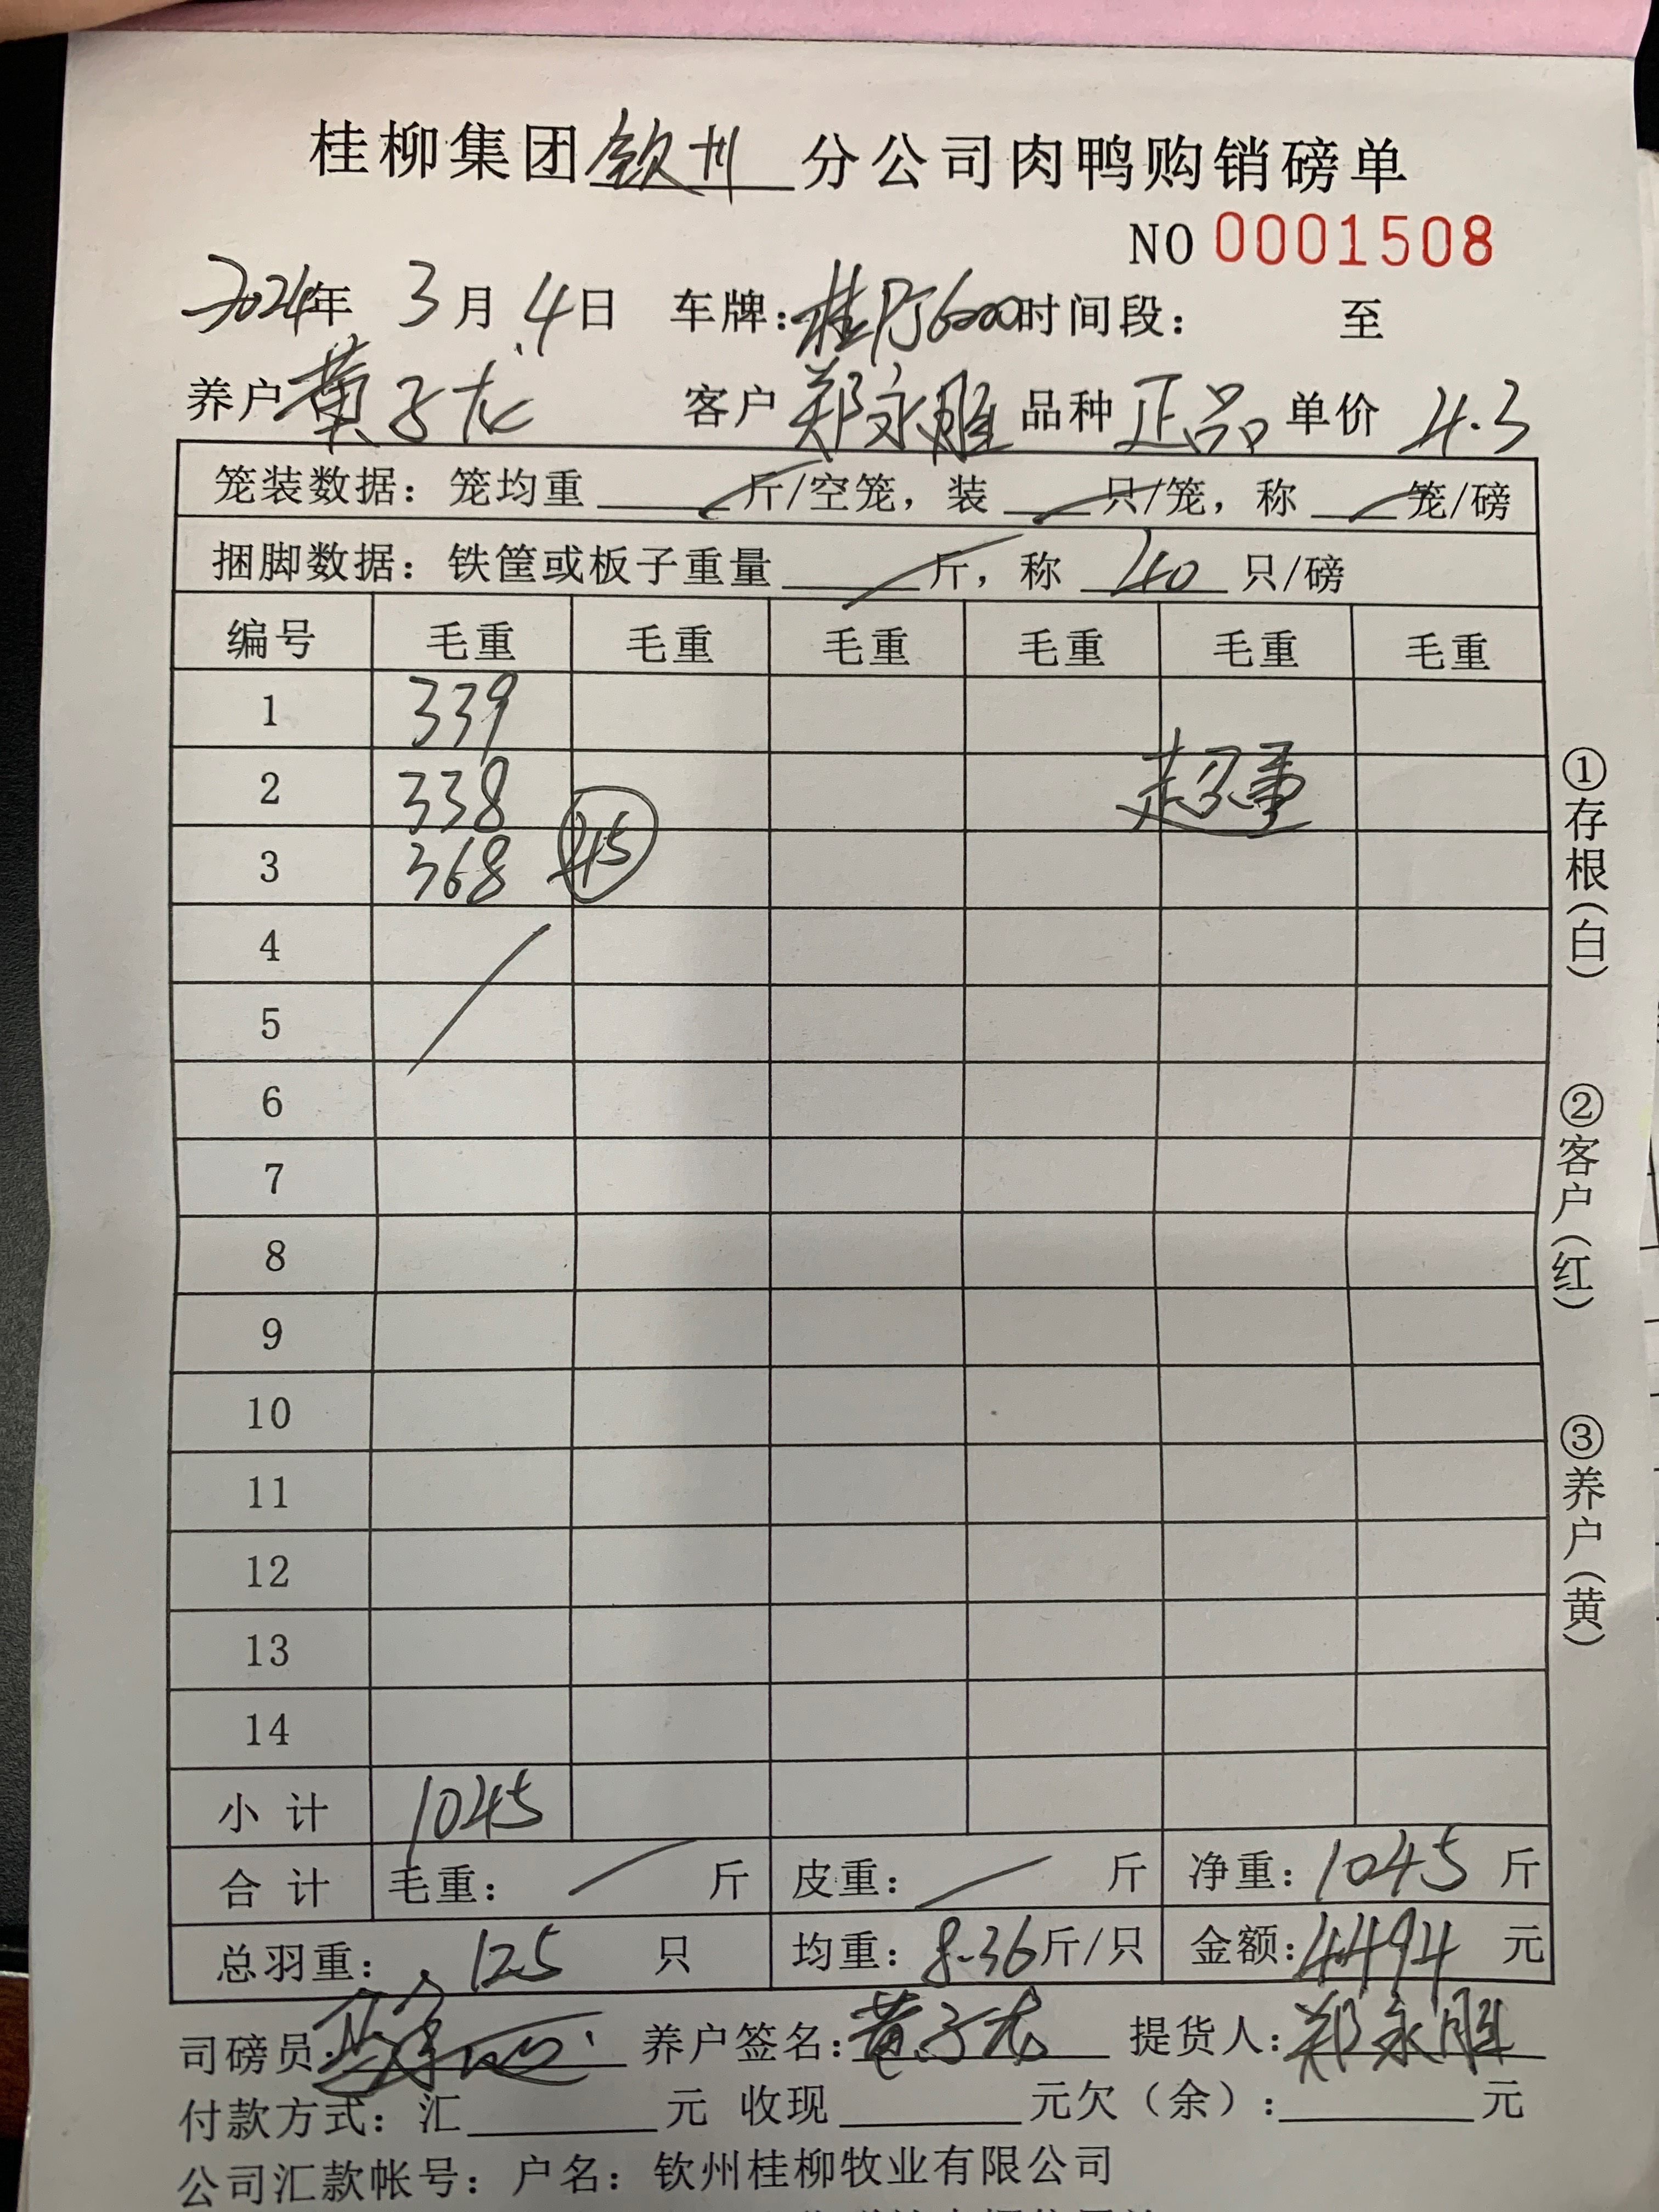 桂柳集团钦州分公司肉鸭购销磅单
NO 0001508
2024年 3月 4日 车牌:桂PJ6000时间段: 至
养户 黄子龙 客户 郑永胜 品种 正品 单价 4.3
笼装数据: 笼均重 / 斤/空笼, 装 / 只/笼, 称 / 笼/磅
捆脚数据: 铁筐或板子重量 / 斤, 称 40 只/磅
编号 毛重 毛重 毛重 毛重 毛重 毛重
1 339
2 338 超重
3 368 45
4
5
6
7
8
9
10
11
12
13
14
小计 1045
合计 毛重: / 斤 皮重: / 斤 净重: 1045 斤
总羽重: 125 只 均重: 8.36斤/只 金额: 4494 元
司磅员: 养户签名: 黄子龙 提货人: 郑永胜
付款方式: 汇 元 收现 元欠(余): 元
公司汇款帐号: 户名: 钦州桂柳牧业有限公司
①存根(白)
②客户(红)
③养户(黄)